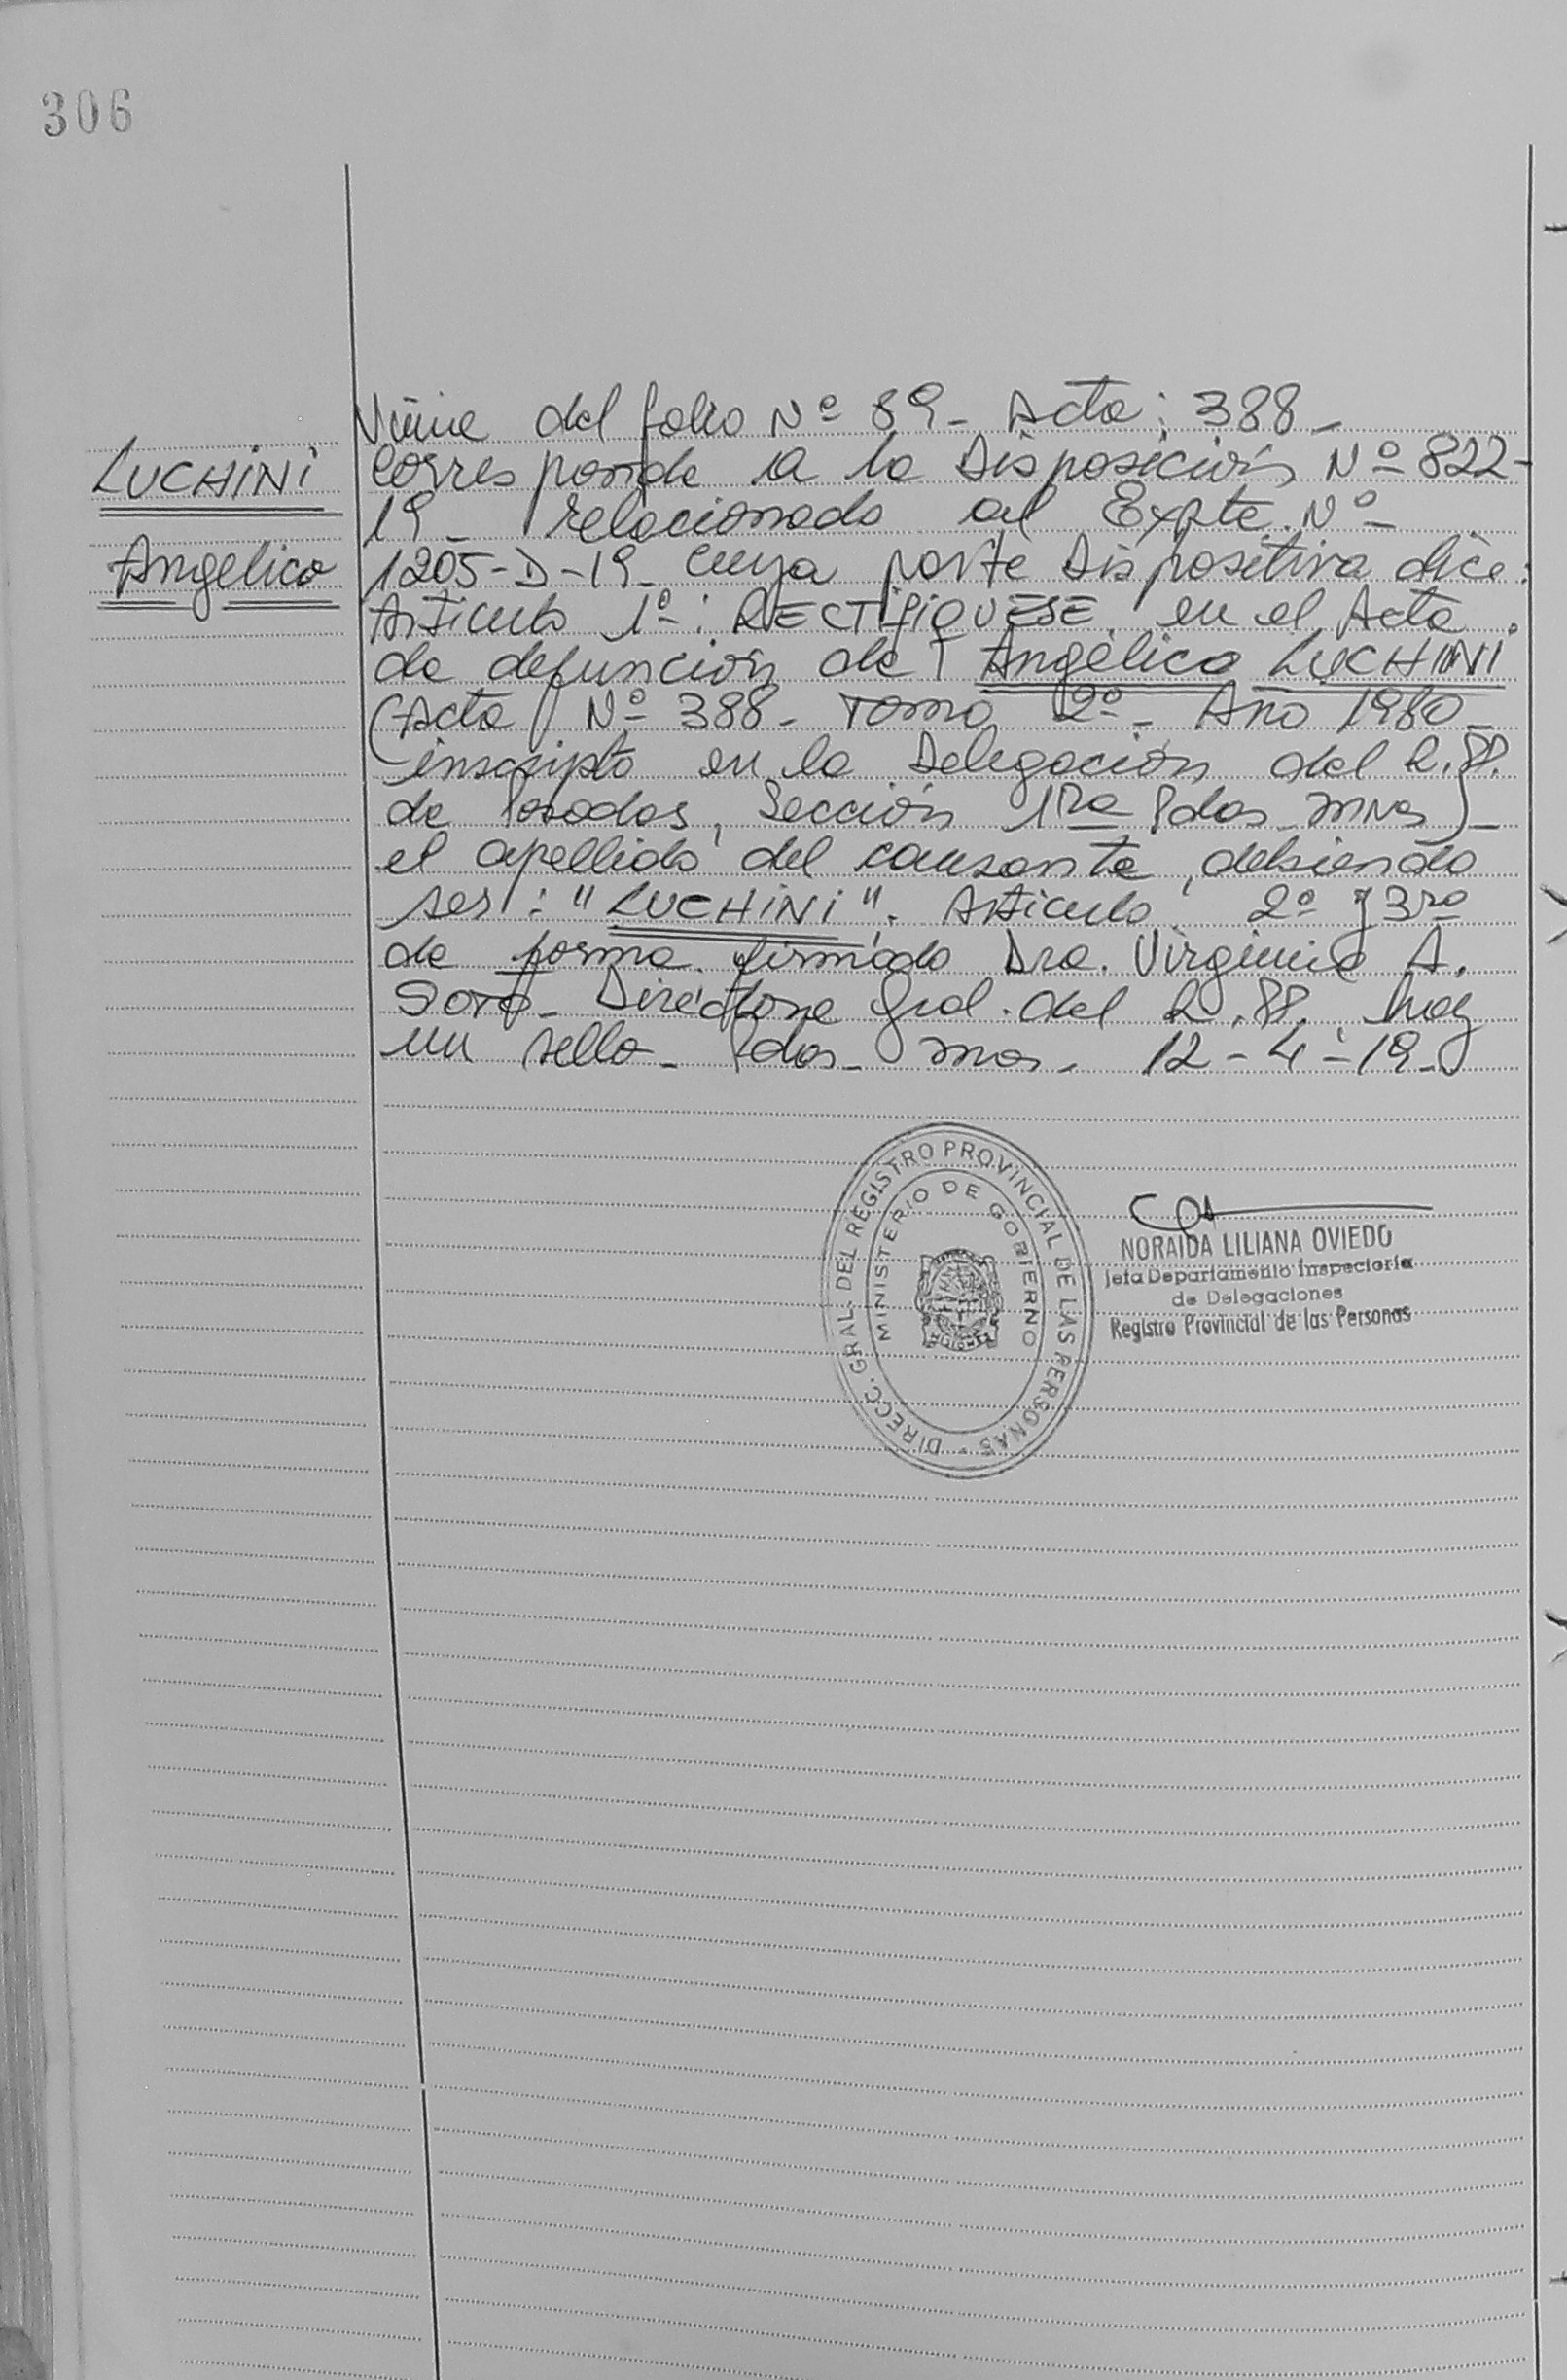 306
LUCHINI
Angelica
Viene del folio Nº 89- Acta: 388-
Corresponde a la Disposición Nº 822-
19- relacionado al Expte. Nº-
1205-D-19- cuya parte Dispositiva dice:
Articulo 1º: RECTIFIQUESE, en el Acta
de defuncion de Angélica LUCHINI
(Acta Nº 388- Tomo 2º- Año 1980-
inscripta en la Delegación del R.PP.
de Posadas, Sección 1ra Pdas-Mnes)-
el apellido del causante, debiendo
ser: "LUCHINI". Articulo 2º y 3ro
de forma. firmado Dra. Virginia A.
Soto- Directora Gral. del R.PP. hay
un sello- Pdas- Mnes- 12-4-19-
DIRECC. GRAL. DEL REGISTRO PROVINCIAL DE LAS PERSONAS -
MINISTERIO DE GOBIERNO
MISIONES
NORAIDA LILIANA OVIEDO
Jefa Departamento Inspectoría
de Delegaciones
Registro Provincial de las Personas